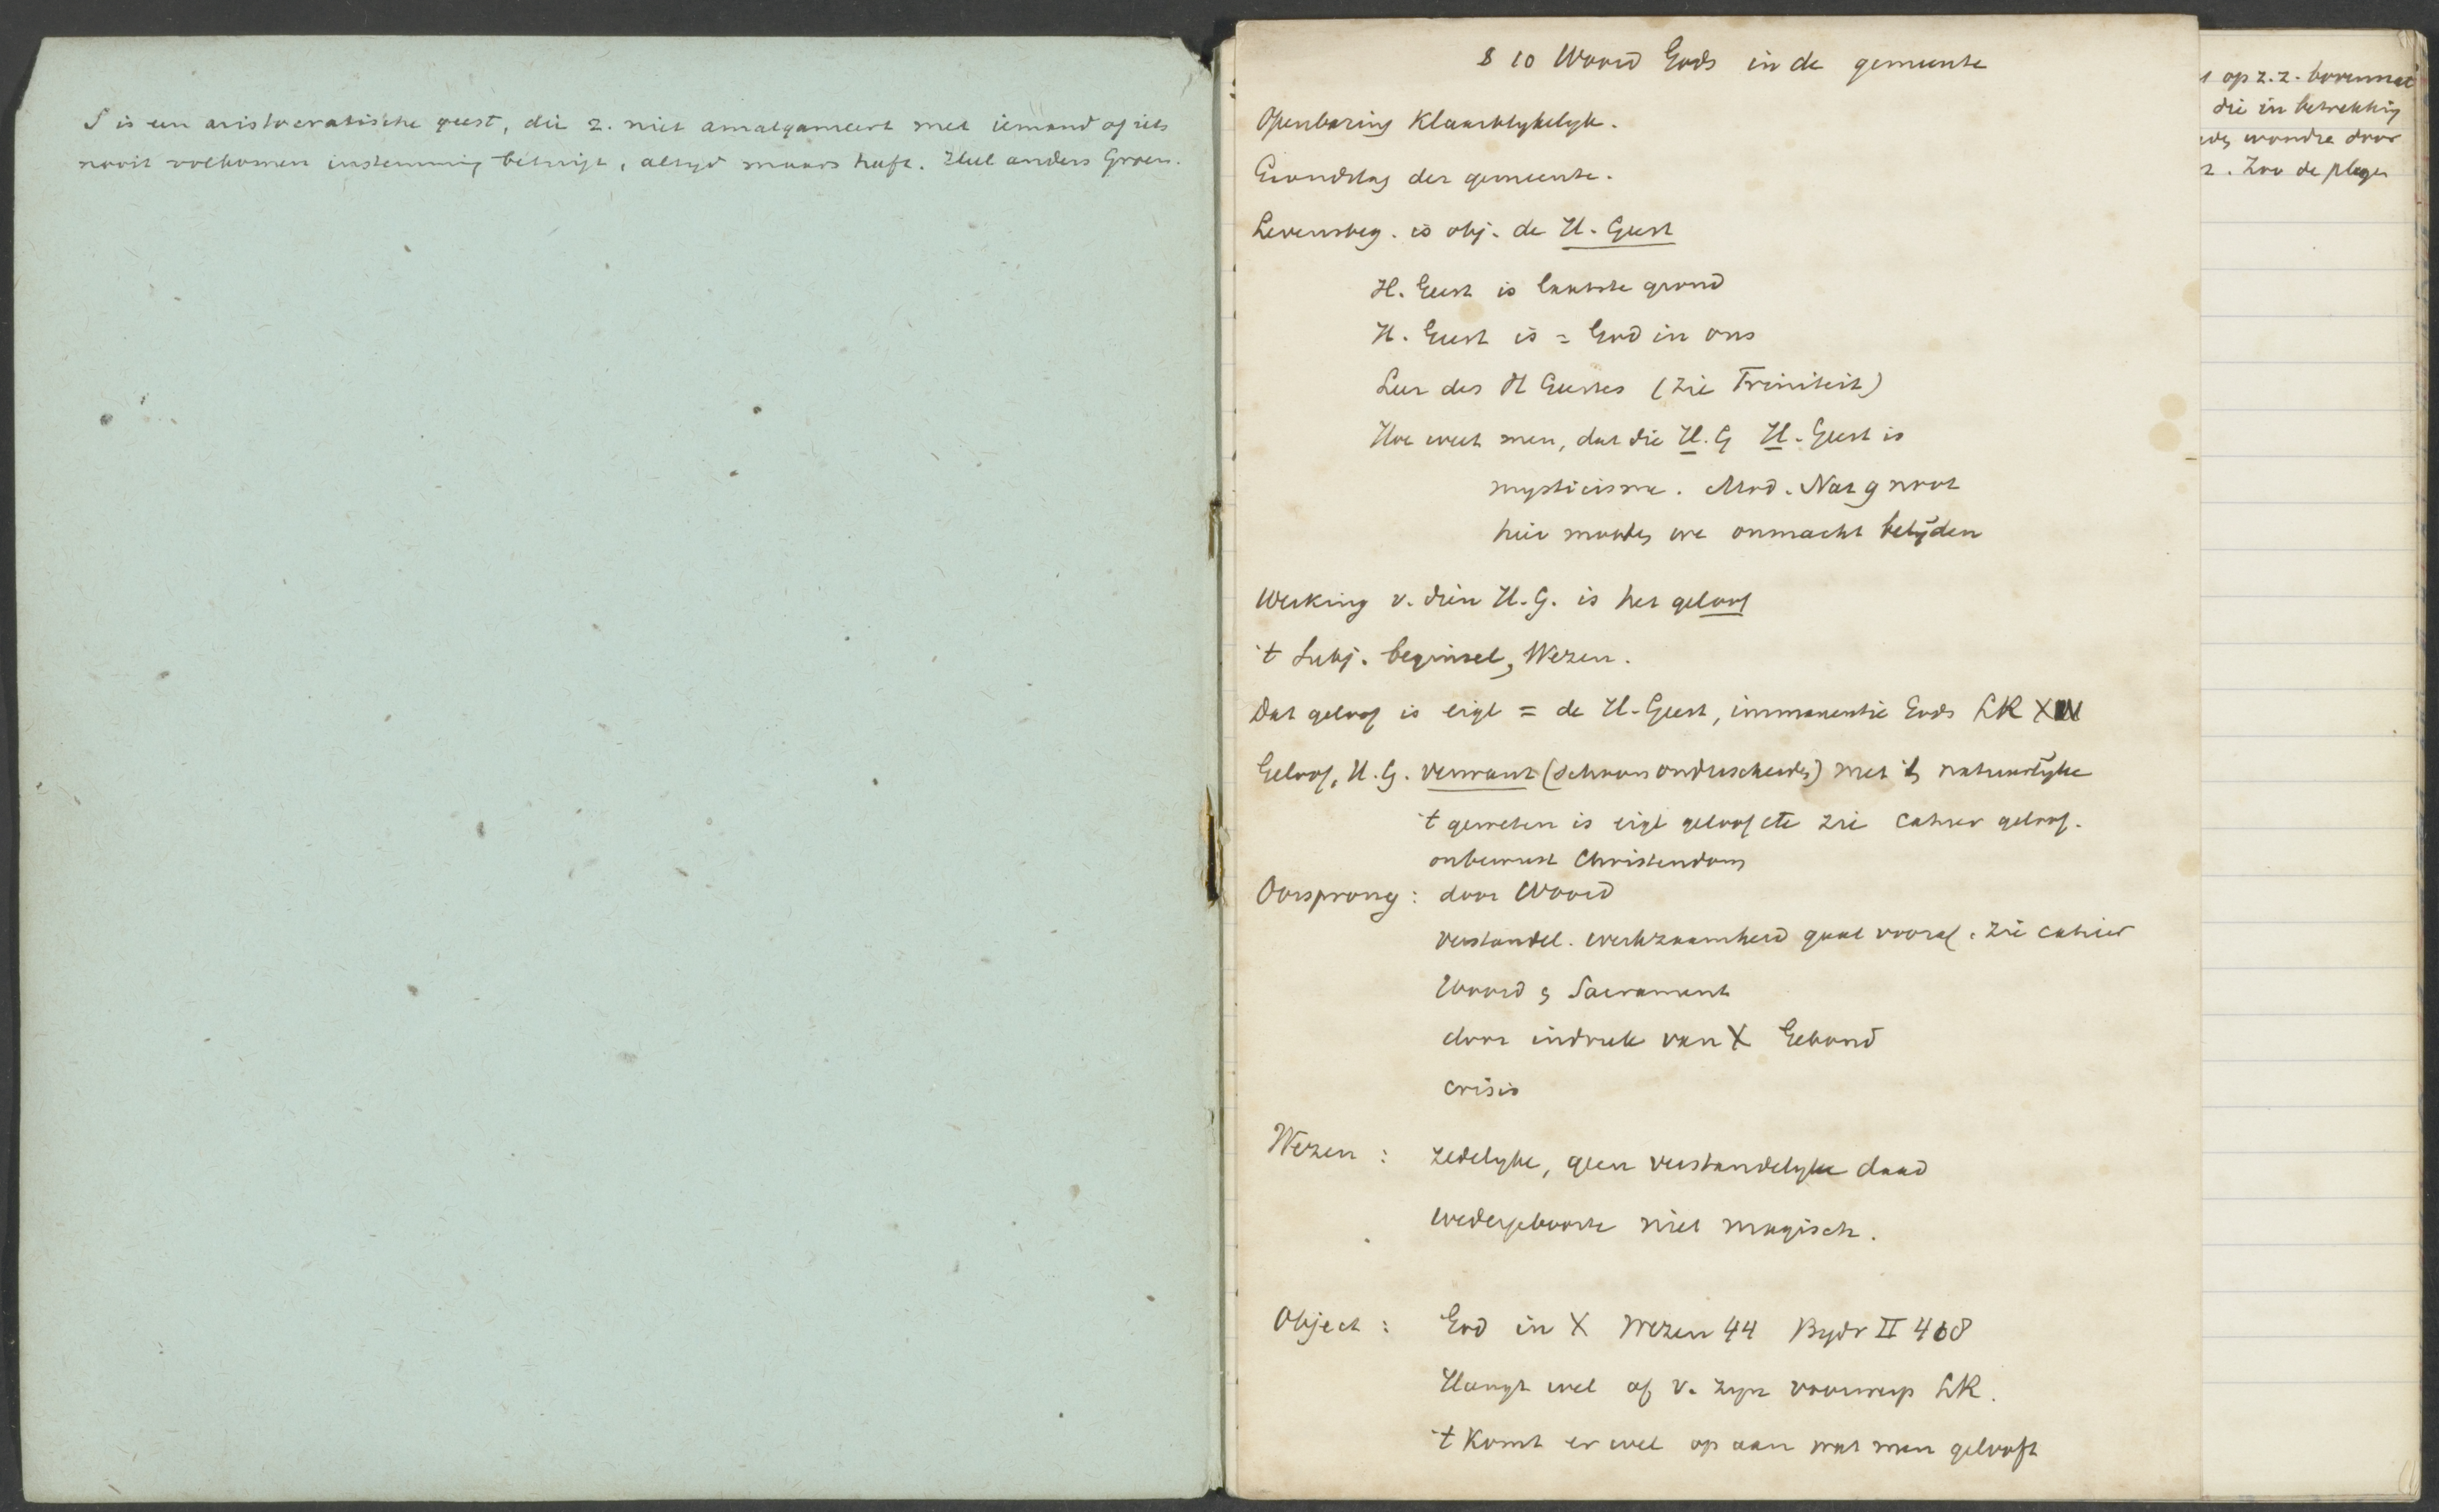 S is een aristocratische geest, die z. niet amalgameert met iemand of iets
nooit volkomen instemming betuigt, altyd maars heeft. Heel anders Groen.
§ 10 Woord Gods in de gemeente
Openbaring Klaarblykelyk.
Grondslag der gemeente.
Levensbeg. is obj. de H. Geest
H. Geest is laatste grond
H. Geest is = God in ons
Leer des H Geestes (zie Triniteit)
Hoe weet men, dat die H. G H. Geest is
mysticisme. Mod.
hier moeten we onmacht belijden
Werking v. dien H. G. is het geloof
't Subj. beginsel, Wezen.
Dat geloof is eigl = de H. Geest, immanentie Gods LR X
Geloof, H. G. verwant (schoon onderscheiden) met 't natuurlyke
't geweten is eigl geloof etc zie cahier geloof.
onbewust Christendom
Oorsprong : door Woord
verstandel. werkzaamheid gaat vooraf. zie cahier
Woord & Sacrament
door indruk van X Geboud
crisis
Wezen : zedelyke, geen verstandelyke daad
wedergeboorte niet magisch.
Object : God in X Wezen 44 Bydr II 468
Hangt wel af v. zyn voorwerp LR.
't Komt er wel op aan wat men gelooft
op z. z. bovennat
die in betrekking
wondre door
. Zoo de plagen